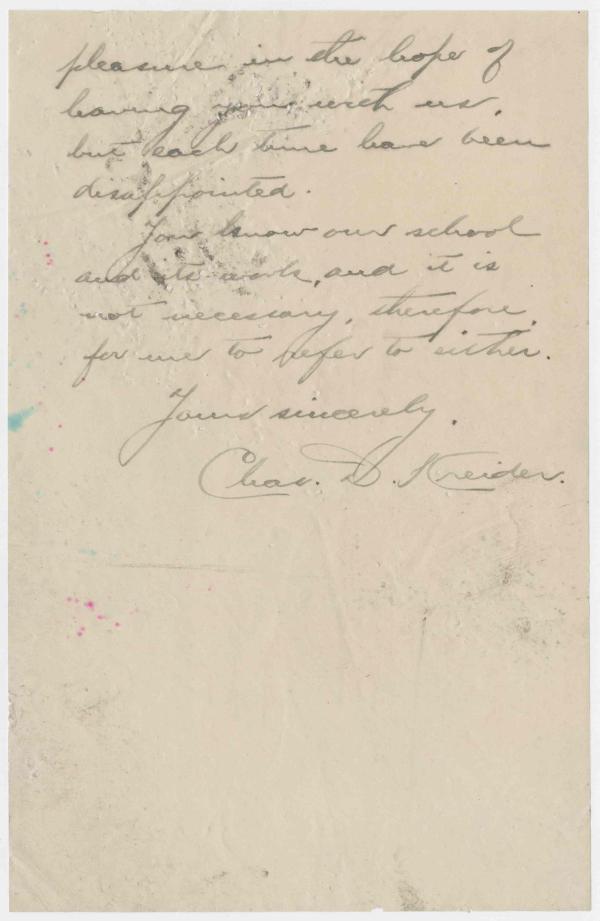 pleasure in the hope of
having you with us,
but each time have been
disappointed.
You know our school
and its work, and it is
not necessary, therefore,
for me to refer to either.
Yours sincerely,
Chas. D. Kreider.